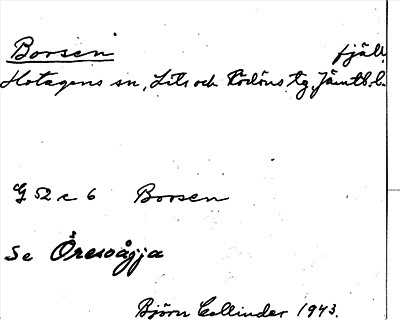 Borsen fjäll.
Hotagens sn, Lits och Rödöns tg, Jämtl. l.
G 52 c 6 Borsen
Se Öresvågja
Björn Collinder 1943.